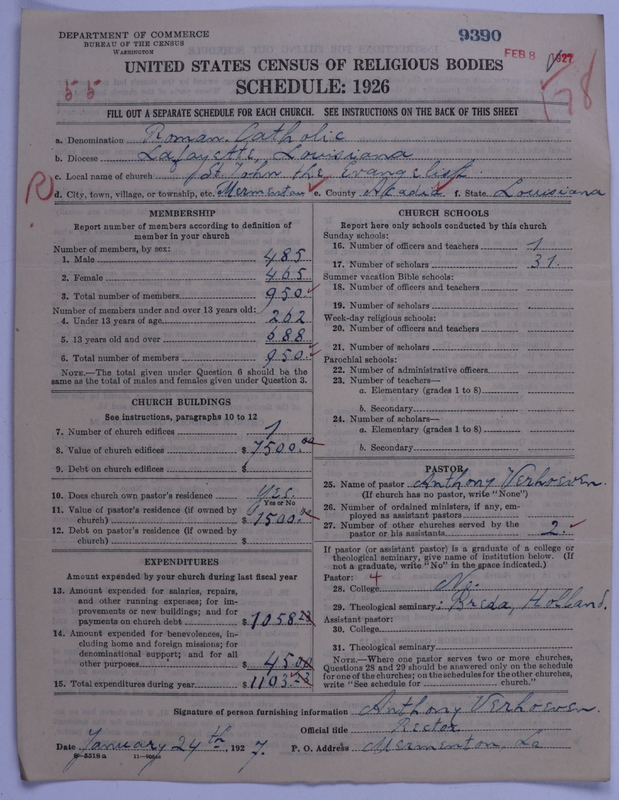 DEPARTMENT OF COMMERCE
BUREAU OF THE CENSUS
WASHINGTON
9390
FEB 8 1927
UNITED STATES CENSUS OF RELIGIOUS BODIES
SCHEDULE: 1926
55
178
FILL OUT A SEPARATE SCHEDULE FOR EACH CHURCH. SEE INSTRUCTIONS ON THE BACK OF THIS SHEET
a. Denomination Roman Catholic
b. Diocese Lafayette, Louisiana
c. Local name of church St John the Evangelist
R
d. City, town, village, or township, etc. Mermentau e. County Akadia f. State Louisiana
MEMBERSHIP
Report number of members according to definition of
member in your church
Number of members, by sex:
1. Male 485
2. Female 465
3. Total number of members 950
Number of members under and over 13 years old:
4. Under 13 years of age 262
5. 13 years old and over 688
6. Total number of members 950
NOTE.—The total given under Question 6 should be the
same as the total of males and females given under Question 3.
CHURCH BUILDINGS
See instructions, paragraphs 10 to 12
7. Number of church edifices 1
8. Value of church edifices $ 7500.00
9. Debt on church edifices $
10. Does church own pastor's residence yes.
Yes or No
11. Value of pastor's residence (if owned by
church) $ 1500.00
12. Debt on pastor's residence (if owned by
church) $
EXPENDITURES
Amount expended by your church during last fiscal year
13. Amount expended for salaries, repairs,
and other running expenses; for im-
provements or new buildings; and for
payments on church debt $ 1058 23
14. Amount expended for benevolences, in-
cluding home and foreign missions; for
denominational support; and for all
other purposes $ 45 00
15. Total expenditures during year $ 1103 23
CHURCH SCHOOLS
Report here only schools conducted by this church
Sunday schools:
16. Number of officers and teachers 1
17. Number of scholars 31
Summer vacation Bible schools:
18. Number of officers and teachers
19. Number of scholars
Week-day religious schools:
20. Number of officers and teachers
21. Number of scholars
Parochial schools:
22. Number of administrative officers
23. Number of teachers—
a. Elementary (grades 1 to 8)
b. Secondary
24. Number of scholars—
a. Elementary (grades 1 to 8)
b. Secondary
PASTOR
25. Name of pastor Anthony Verhoeven.
(If church has no pastor, write "None")
26. Number of ordained ministers, if any, em-
ployed as assistant pastors
27. Number of other churches served by the
pastor or his assistants 2.
If pastor (or assistant pastor) is a graduate of a college or
theological seminary, give name of institution below. (If
not a graduate, write "No" in the space indicated.)
Pastor: 4
28. College No.
29. Theological seminary: Breda, Holland.
Assistant pastor:
30. College
31. Theological seminary
NOTE.—Where one pastor serves two or more churches,
Questions 28 and 29 should be answered only on the schedule
for one of the churches; on the schedules for the other churches,
write "See schedule for church."
Signature of person furnishing information Anthony Verhoeven.
Official title Rector
Date January 24th, 1927. P. O. Address Mermentau, La
8-5318a